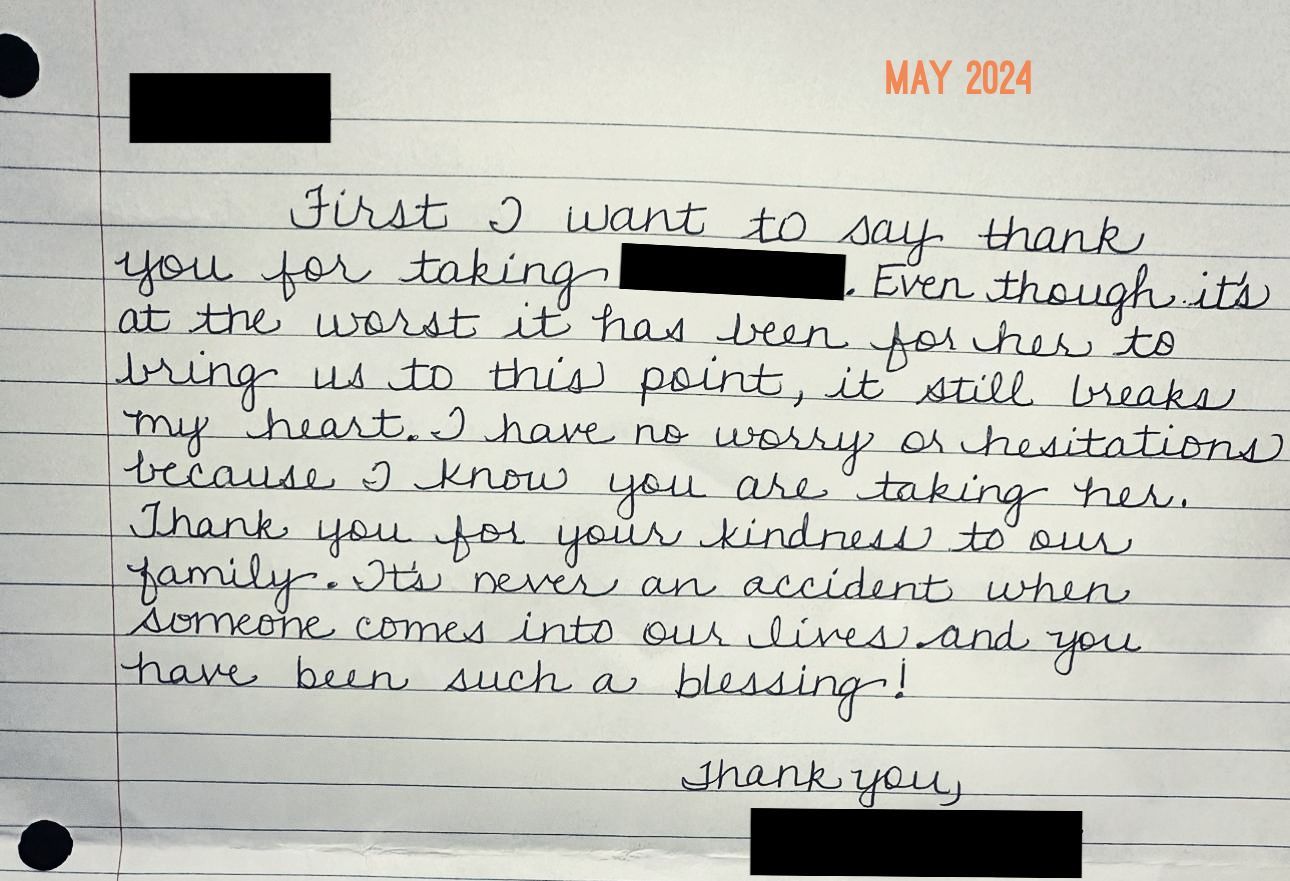 MAY 2024
First I want to say thank
you for taking . Even though it's
at the worst it has been for her to
bring us to this point, it still breaks
my heart. I have no worry or hesitations
because I know you are taking her.
Thank you for your kindness to our
family. It's never an accident when
someone comes into our lives and you
have been such a blessing!
Thank you,